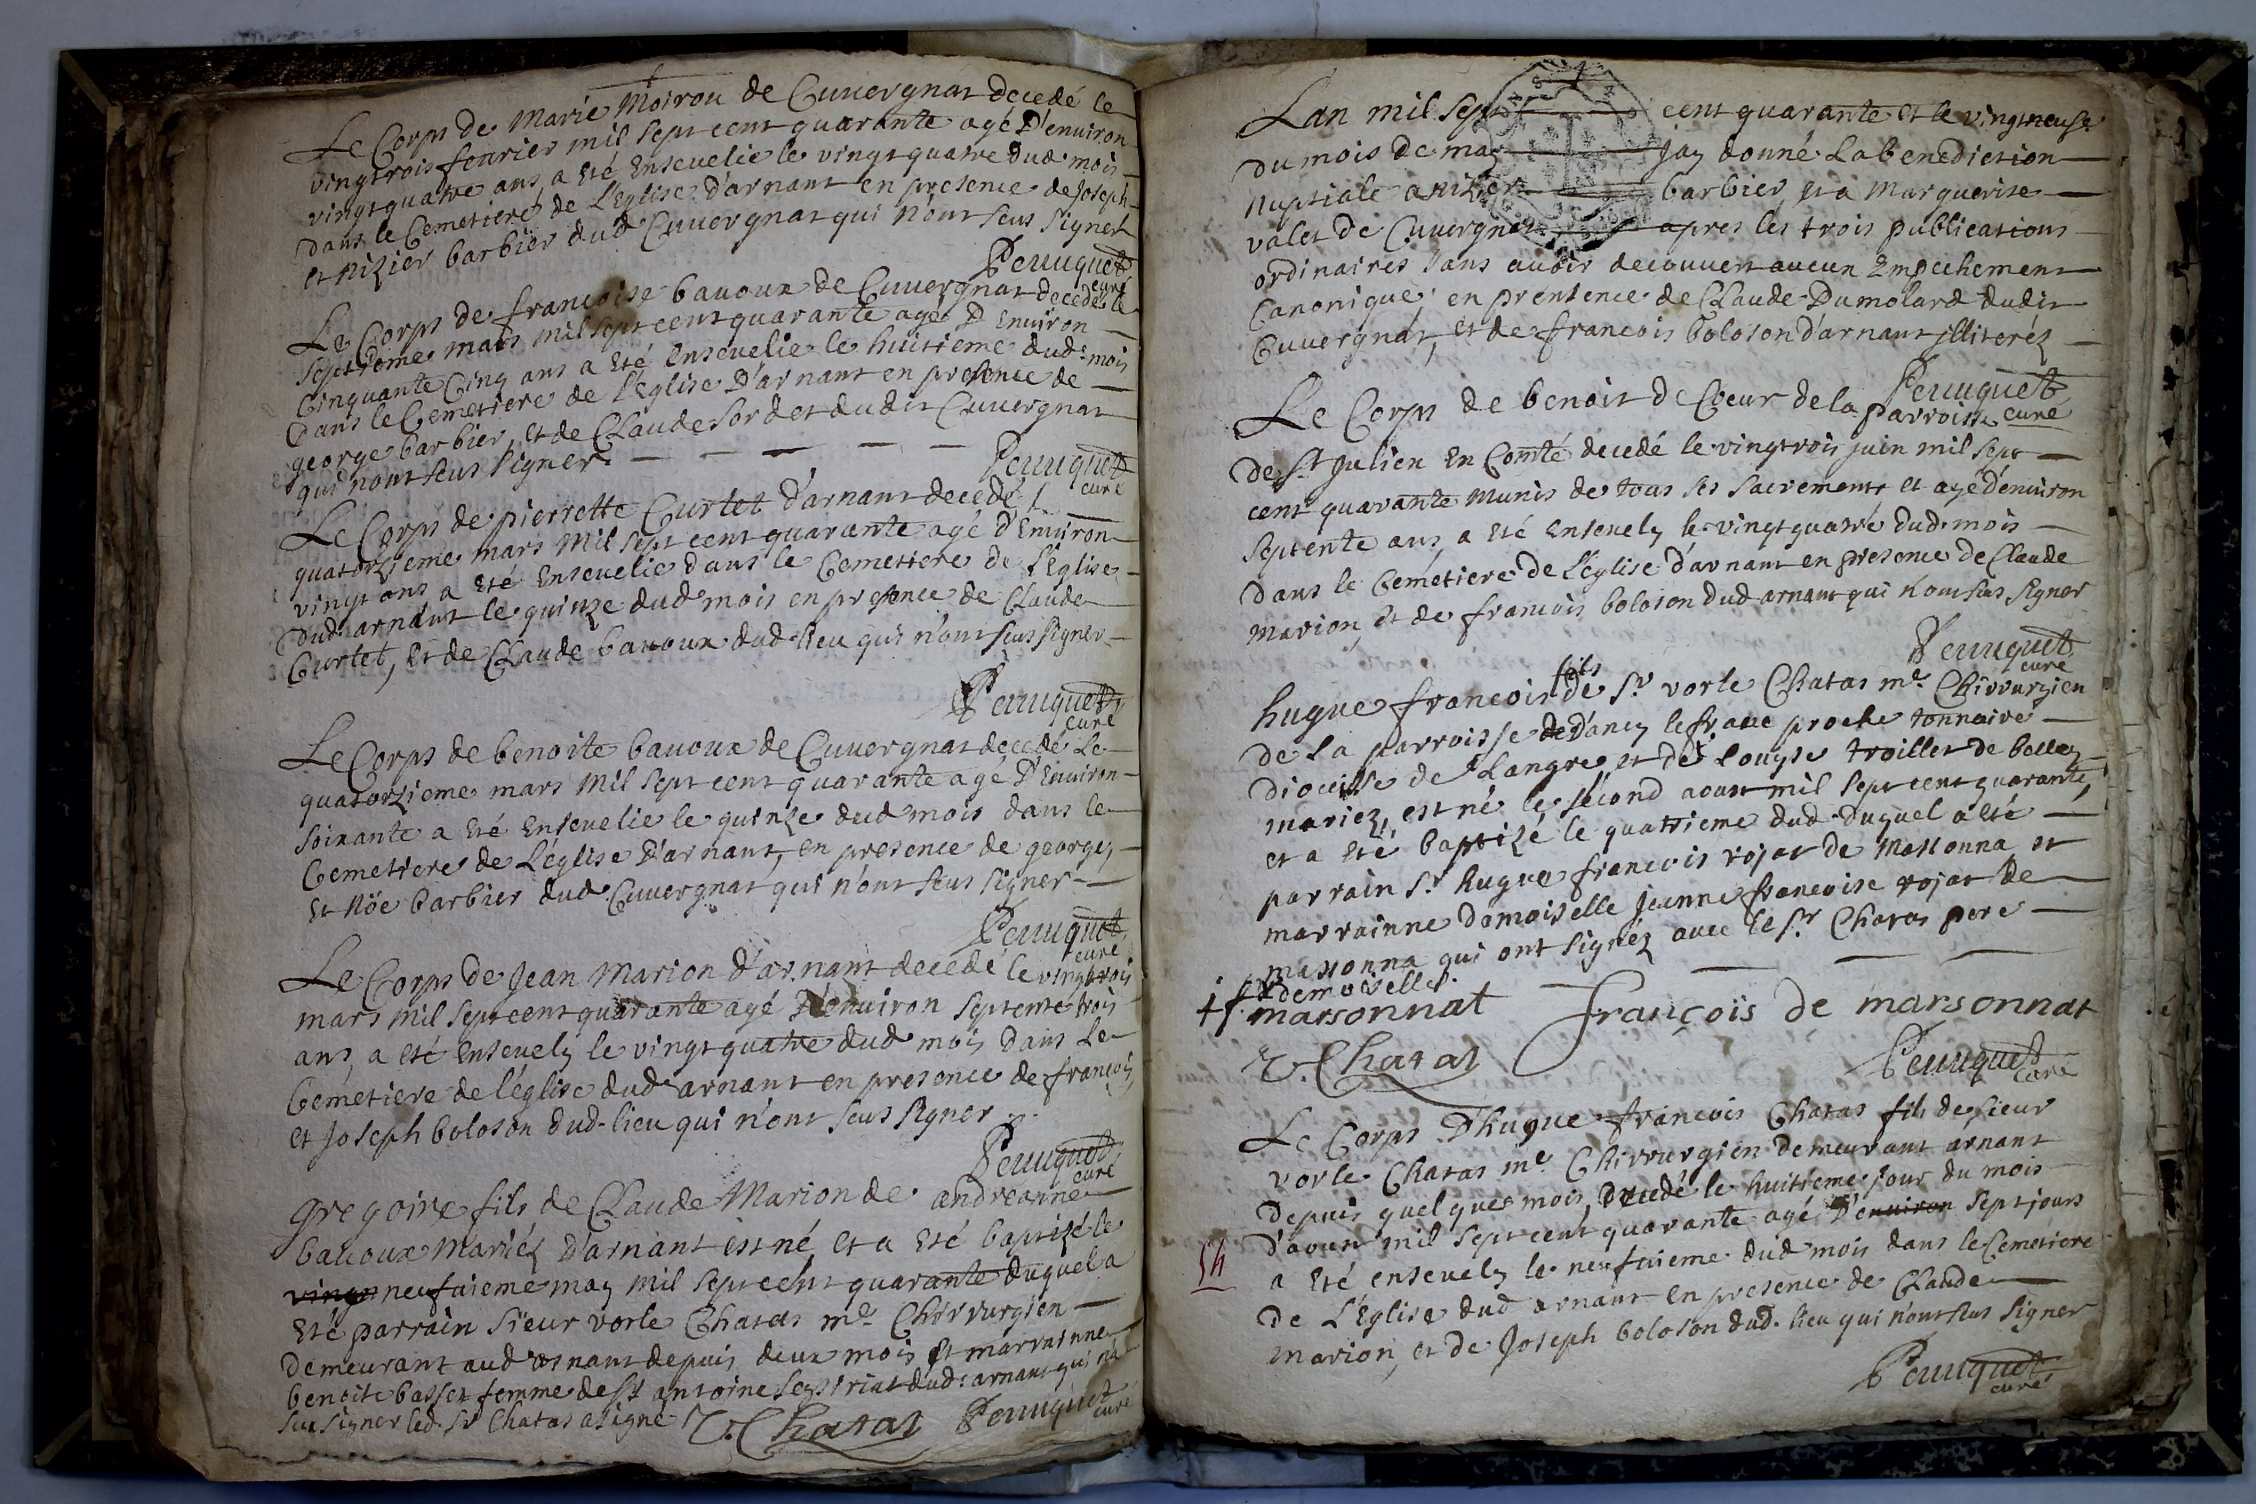 Le Corps de Marie Moirou de Cuvergnat decedé le
vingtrois feurier mil sept cent quarante agé D'enuiron
vingt quatre ans a Eté Enseuelie le vingt quatre dud mois
dans le Cemetiere de L'Eglise d'arnant en presence de Joseph
et nizier barbier dud Cuvergnat qui n'ont seus signer
Peruquet
curé
Le Corps de francoise bauoux de Cuvergnat decedé le
septieme mars mil sept cent quarante agé D'Enuiron
Cinquante Cinq ans a Eté Enseuelie le huitieme dud. mois
Dans le Cemetiere de l'Eglise D'arnant en presence de
george barbier, et de Claude Sordet dudit Cuvergnat
qui n'ont seus signer.
Peruquet
curé
Le Corps de pierrette Curtet d'arnant decedé
quatorzieme mars mil sept cent quarante agé d'Enuiron
vingt ans a Eté Enseuelie dans le Cemettere de l'Eglise
dud. arnant le quinze dud mois en presence de Claude
Curtet, et de Claude bauoux dud. lieu qui n'ont seus signer
Peruquet
curé
Le Corps de benoite bauoux de Cuvergnat decedé Le
quatorzieme mars mil sept cent quarante agé D'Enuiron
soixante a Eté Enseuelie le quinze dud mois dans le
Cemetiere de L'église D'arnant, en presence de george,
et Nöe barbier dud. Cuvergnat qui n'ont seus signer
Peruquet
curé
Le Corps de Jean Marion d'arnant decedé le vingtrois
mars mil sept cent quarante agé D'enuiron septente trois
ans a eté Enseuely le vingt quatre dud mois dans Le
Cemetiere de l'église dud arnant en presence de francois,
et Joseph boloson dud. lieu qui n'ont seus signer
Peruquet
curé
gregoire fils de Claude Marion de andreanne
bauoux Mariéz D'arnant est né et a Eté baptizé le
vingt neufuieme may mil sept cent quarante duquel a
Eté parrain sieur vorle Chatas me. Chirrurgien
demeurant aud arnant depuis deux mois et marrainne
benoite basset femme de St antoine Seystriat dud. arnant qui n'a
seu signer led. Sr Chatas a signé V. Chatas Peruquet
curé
Lan mil sept cent quarante et le vingtneufe
du mois de may jay donné La benediction
nuptiale a nizier barbier et a Marguerite
valet de Cuvergnat apres les trois publications
ordinaires sans auoir decouuert aucun Empechement
Canonique, en prensence de Claude Dumolard dudit
Cuvergnat, et de francois boloson d'arnant illiteréz
Peruquet
curé
Le Corps de benoit de Coeur de la parroisse
de St Julien En Comté decedé le vingtrois juin mil sept
cent quarante munis de tous ses sacrements et agé d'enuiron
septente ans a eté Enseuely le vingt quatre dud. mois
dans le Cemetiere de l'église d'arnant en presence de Claude
marion, et de francois boloson dud arnant qui n'ont seus signer
Peruquet
curé
hugue francois fils de Sr vorle Chatas me. Chirrurgien
de la parroisse de D'ancy le franc proche tonnaire
Diocesse de Langre, et de Louyse troillet de belley
mariez, est né le second aoust mil sept cent quarante,
et a eté baptizé le quatrieme dud. duquel a eté
parrain Sr hugue francois rojat de Massonna et
marrainne damoiselle jeanne francoise rojat de
massonna qui ont signéz auec le Sr Chatas pere
+ demoiselle
marsonnat François de marsonnat
V. Chatas
Peruquet
curé
Le Corps D'hugue francois Chatas fils de sieur
vorle Chatas me. Chirrurgien demeurant arnant
depuis quelques mois, decedé le huitieme jour du mois
D'aoust mil sept cent quarante agé D'enuiron sept jours
a Eté enseuely le neufuieme dud mois dans le Cemetiere
54
de L'Eglise dud arnant en presence de Claude
marion, et de Joseph boloson dud. lieu qui n'ont seus signer
Peruquet
curé